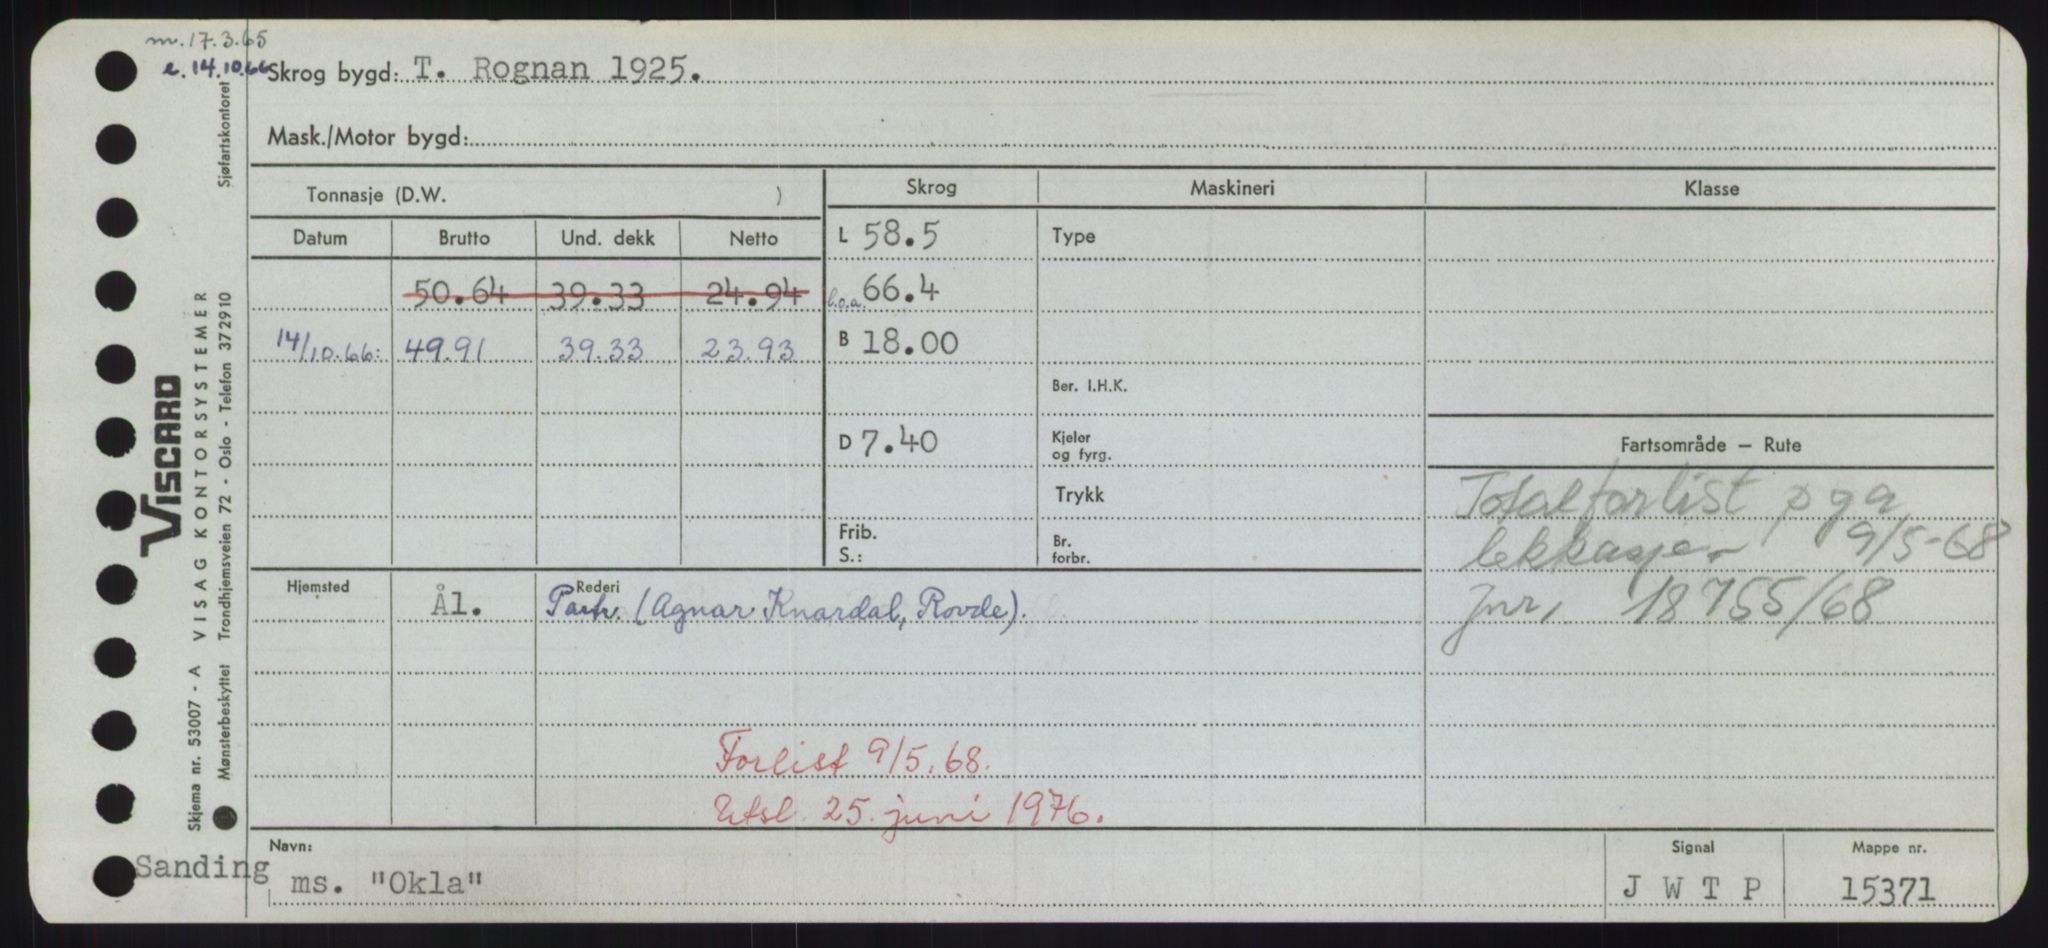 m. 17.3.65
e. 14.10.66
Skrog bygd: T. Rognan 1925.
Mask./Motor bygd:
Tonnasje (D.W. )
Skrog
Maskineri
Klasse
Datum Brutto Und. dekk Netto
L 58.5
Type
50.64 39.33 24.94
l.o.a. 66.4
14/10.66: 49.91 39.33 23.93
B 18.00
Ber. I.H.K.
D 7.40
Kjeler
og fyrg.
Fartsområde — Rute
Trykk
Totalforlist p g a
lekkasje. 9/5-68
Jnr, 18755/68
Frib.
S.:
Br.
forbr.
Hjemsted
Ål.
Rederi
Partr. (Agnar Knardal, Rovde).
Forlist 9/5.68.
Utsl. 25. juni 1976.
Navn:
Sanding
ms. "Okla"
Signal
J W T P
Mappe nr.
15371
Skjema nr. 53007 - A VISAG KONTORSYSTEMER
Mønsterbeskyttet Trondhjemsveien 72 - Oslo - Telefon 372910
Sjøfartskontoret
VISCARD